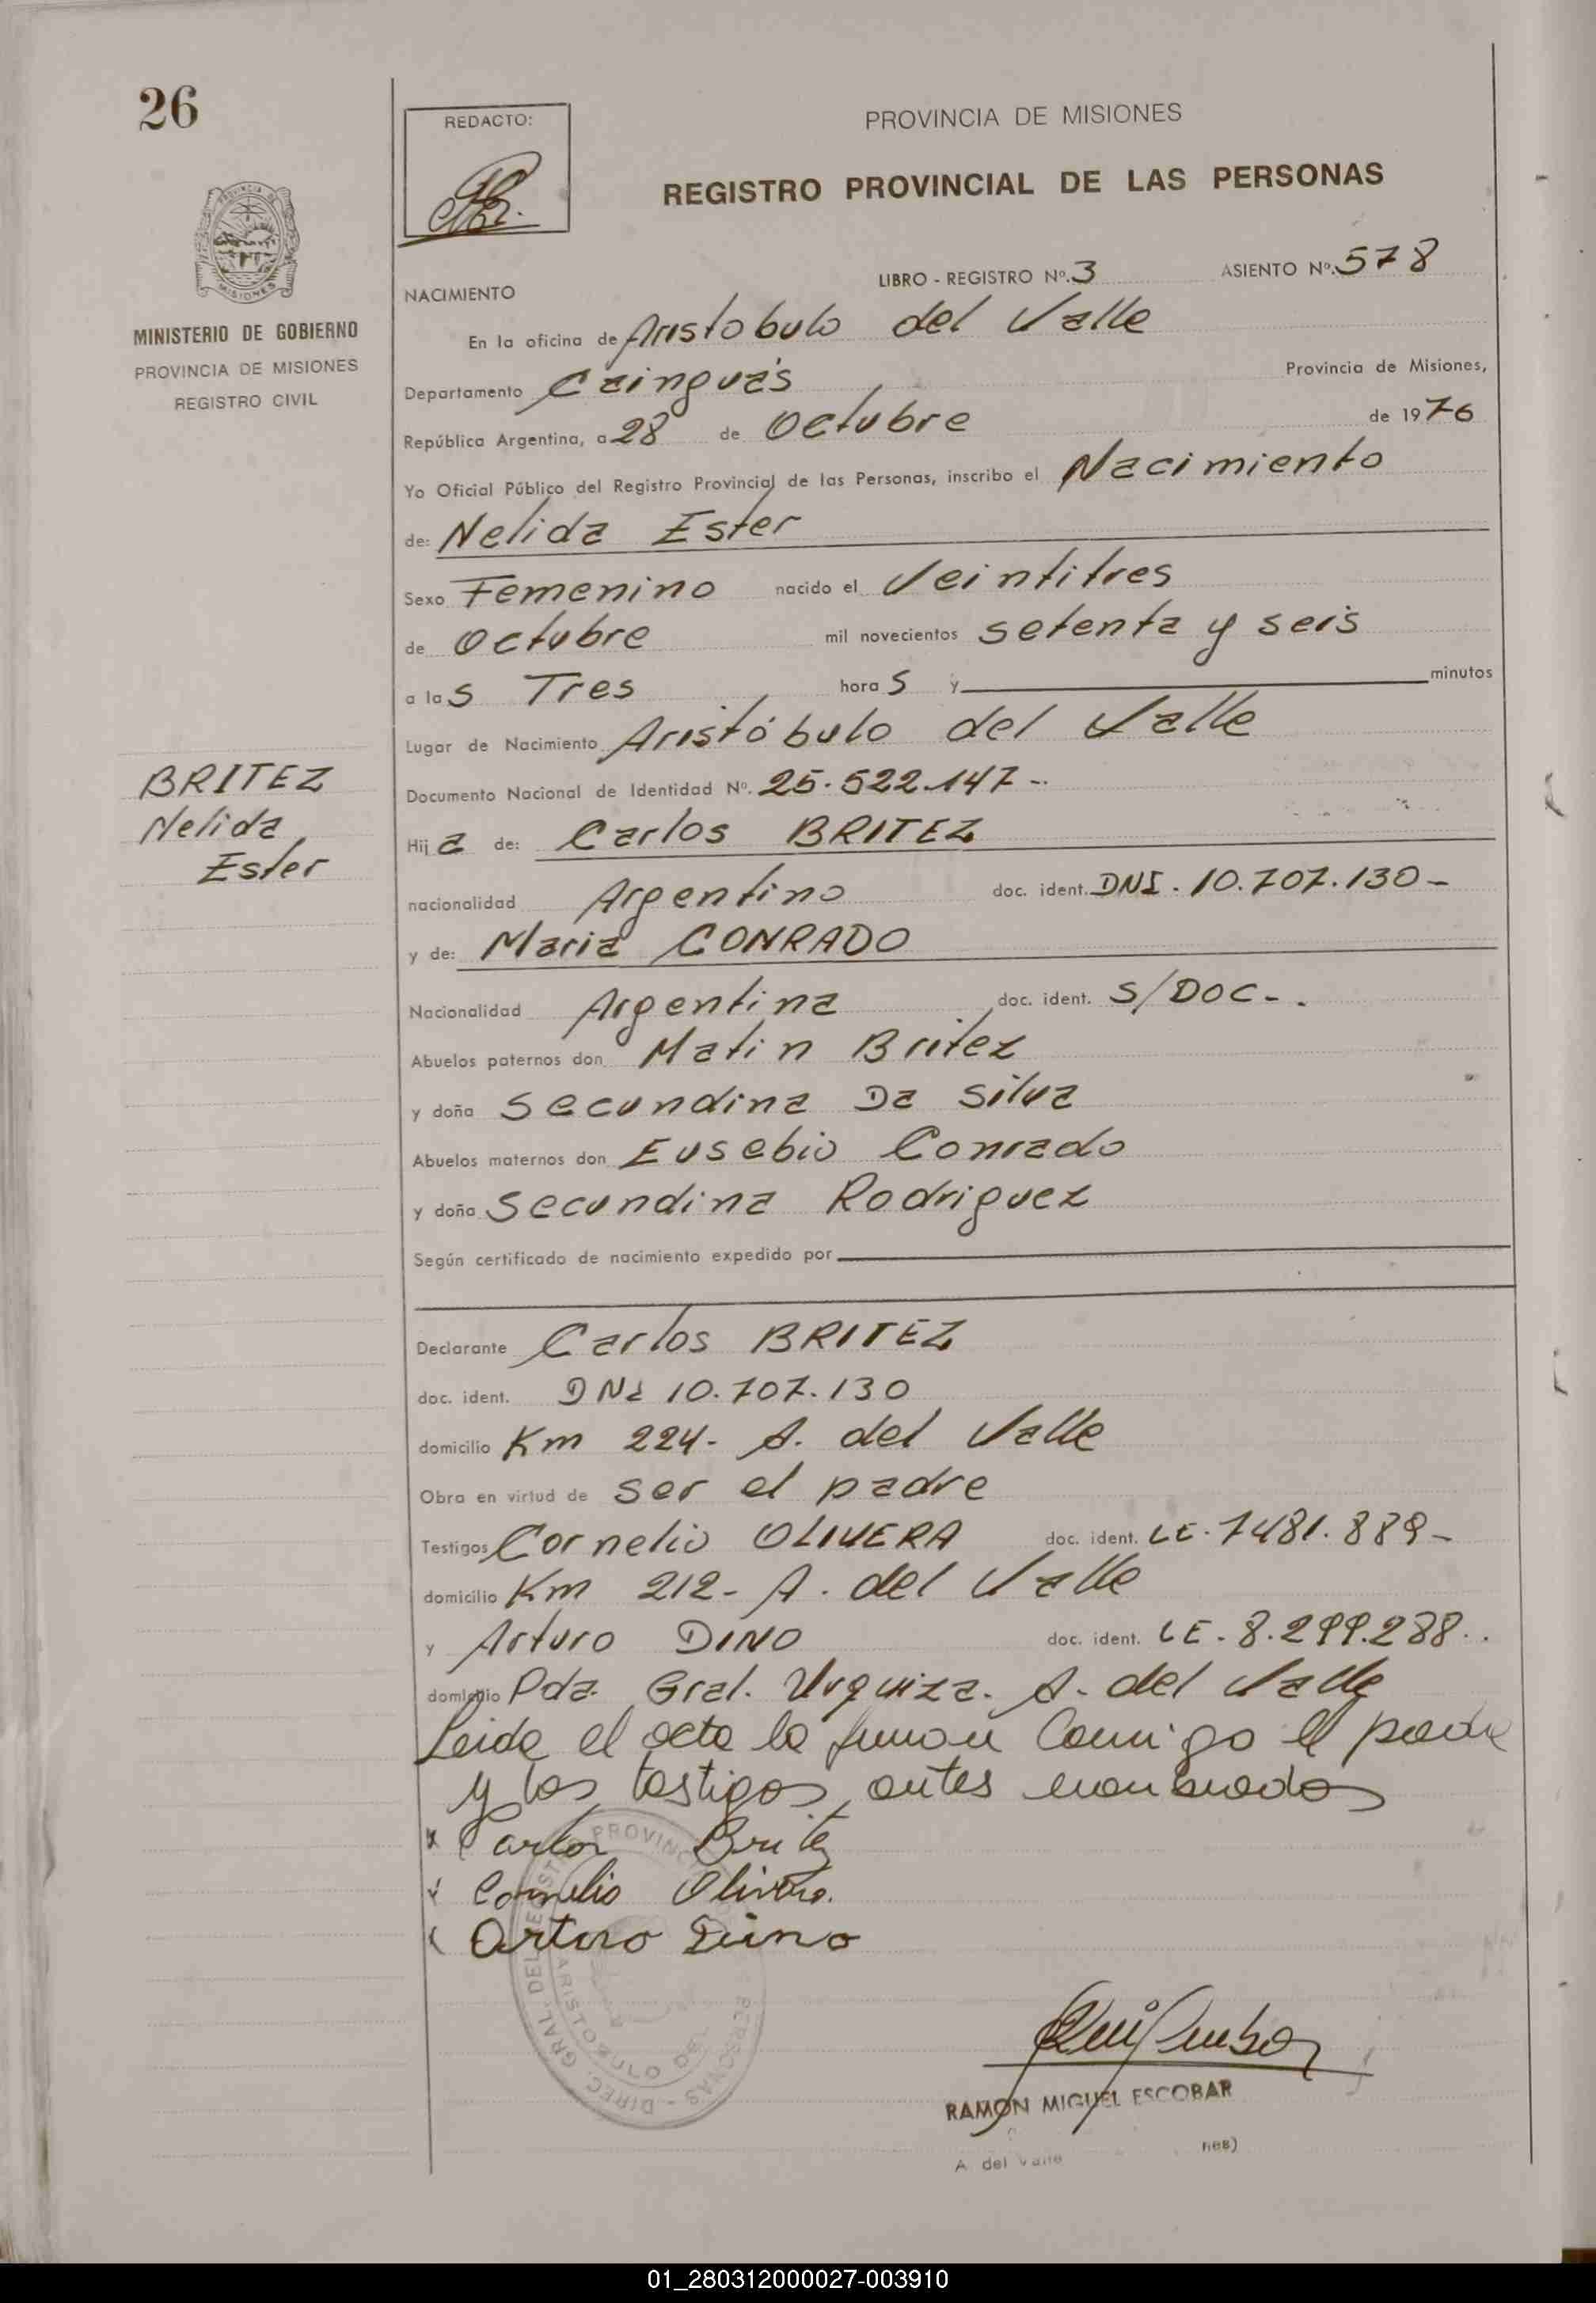 26
REDACTO:
PROVINCIA DE MISIONES
REGISTRO PROVINCIAL DE LAS PERSONAS
MISIONES
MINISTERIO DE GOBIERNO
PROVINCIA DE MISIONES
REGISTRO CIVIL
LIBRO - REGISTRO Nº. 3 ASIENTO Nº. 578
NACIMIENTO
En la oficina de Aristobulo del Valle
Departamento Cainguás Provincia de Misiones,
República Argentina, a 28 de Octubre de 1976
Yo Oficial Público del Registro Provincial de las Personas, inscribo el Nacimiento
de: Nelida Ester
Sexo Femenino nacido el Veintitres
de Octubre mil novecientos setenta y seis
a las Tres horas y minutos
Lugar de Nacimiento Aristóbulo del Valle
BRITEZ
Nelida
Ester
Documento Nacional de Identidad Nº. 25.522.147-.
Hija de: Carlos BRITEZ
nacionalidad Argentino doc. ident. DNI. 10.707.130-
y de: Maria CONRADO
Nacionalidad Argentina doc. ident. S/DOC-.
Abuelos paternos don Matin Britez
y doña Secundina Da Silva
Abuelos maternos don Eusebio Conrado
y doña Secundina Rodriguez
Según certificado de nacimiento expedido por
Declarante Carlos BRITEZ
doc. ident. DNI 10.707.130
domicilio Km 224- A. del Valle
Obra en virtud de ser el padre
Testigos Cornelio OLIVERA doc. ident. LE. 7481.889-
domicilio Km 212- A. del Valle
y Arturo DINO doc. ident. LE. 8.299.288..
domicilio Pda. Gral. Urquiza. A. del Valle
Leida el acta la firman Comigo el padre
y los testigos antes nombrados
x Carlos Britez
x Cornelio Olivera.
x Arturo Dino
DIREC. GRAL. DEL REGISTRO PROVINCIAL PERSONAS
ARISTOBULO DEL
RAMON MIGUEL ESCOBAR
A. del Valle nes)
01_280312000027-003910